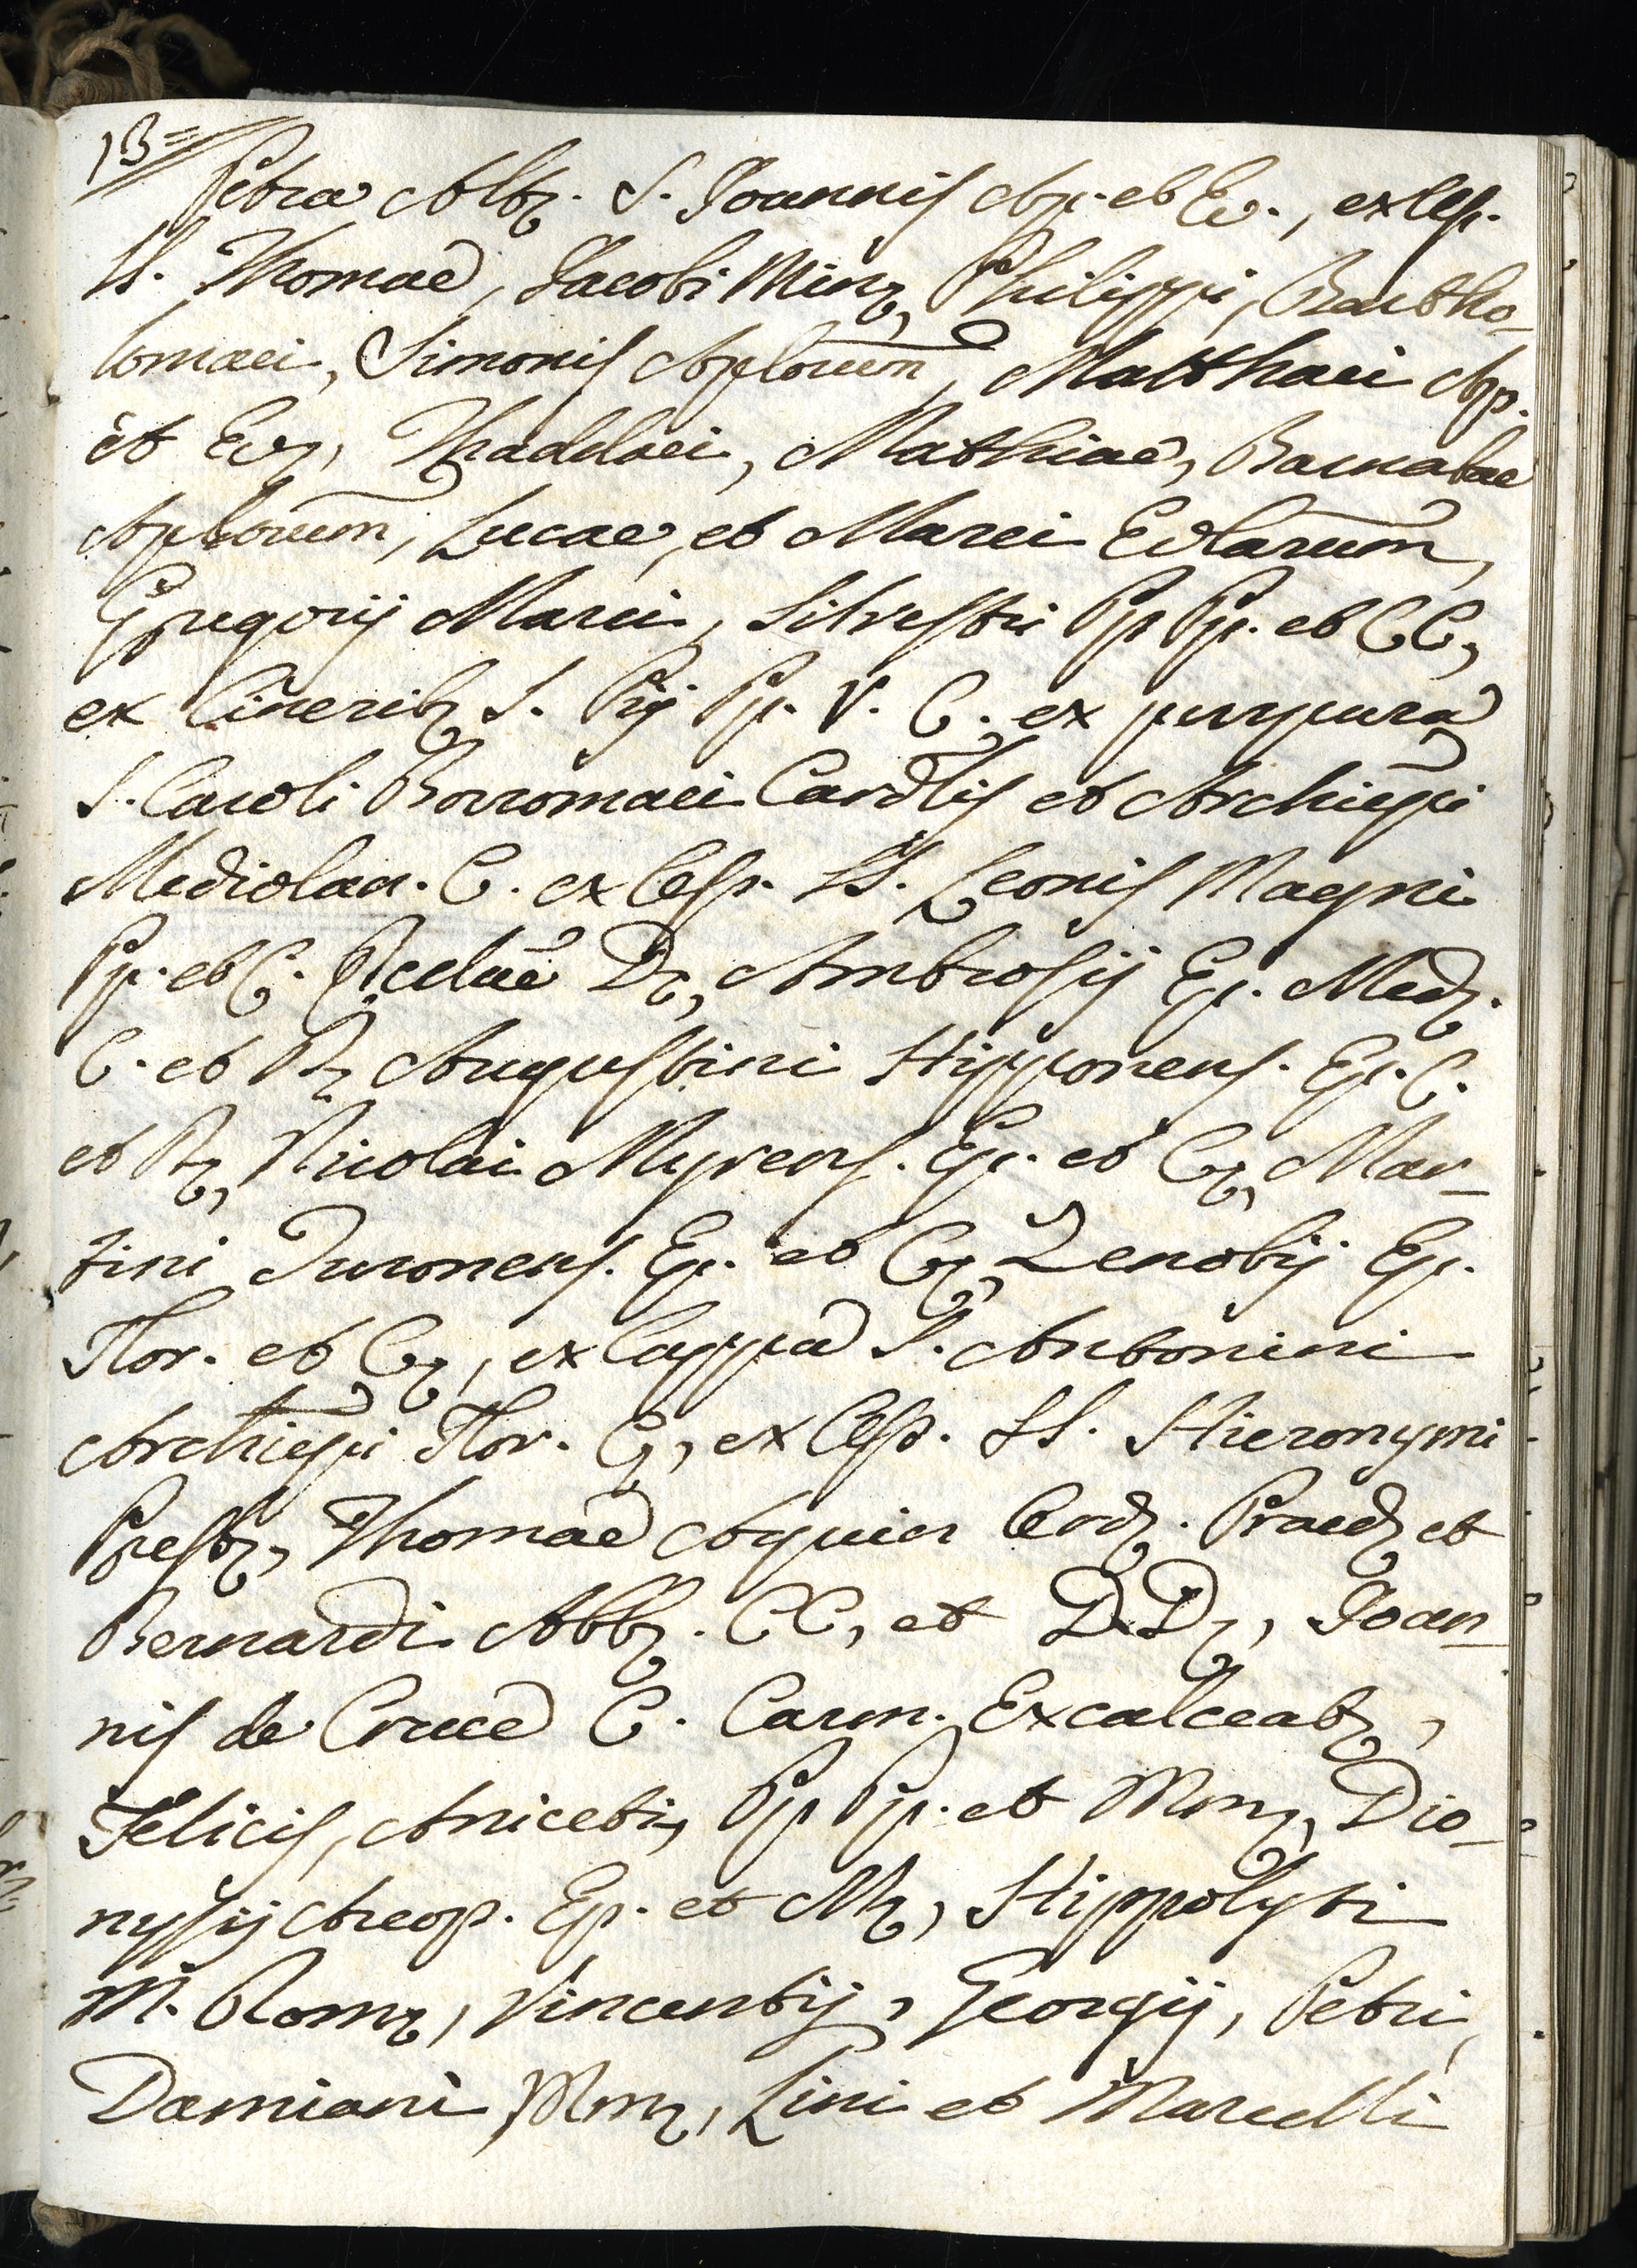 13=
Petra Alb. S. Joannis Ap. et Ev., ex Oss.
SS. Thomae, Jacobi Min, Philippi, Bartho-
lomaei, Simonis Aplorum, Matthaei Ap.
et Ev, Thaddaei, Mathiae, Barnabae
Aplorum, Lucae, et Marci Evlarum,
Gregorij Marci, Silvestri Pp Pp. et CC,
ex Cinerib S. Pij Pp. V. C. ex purpura
S. Caroli Borromaei Cardlis et Archiepi
Mediolan. C. ex Oss. SS. Leonis Magni
Pp. et C. Ecclae D, Ambrosij Ep. Med.
C. et D, Augustini Hipponens. Ep. C.
et D, Nicolai Myrens. Ep. et C, Mar-
tini Turonens. Ep. et C, Zenobij Ep.
Flor. et C, ex Cappa S. Antonini
Archiepi Flor. C, ex Oss. SS. Hieronymi
Presb, Thomae Aquin Ord. Praed et
Bernardi Abb. CC, et DD, Joan-
nis de Cruce C. Carm. Excalceat,
Felicis, Aniceti, Pp Pp. et Mm, Dio-
nysij Areop. Ep. et M, Hippolyti
M. Rom, Vincentij, Georgij, Petri,
Damiani Mm, Lini et Marcelli